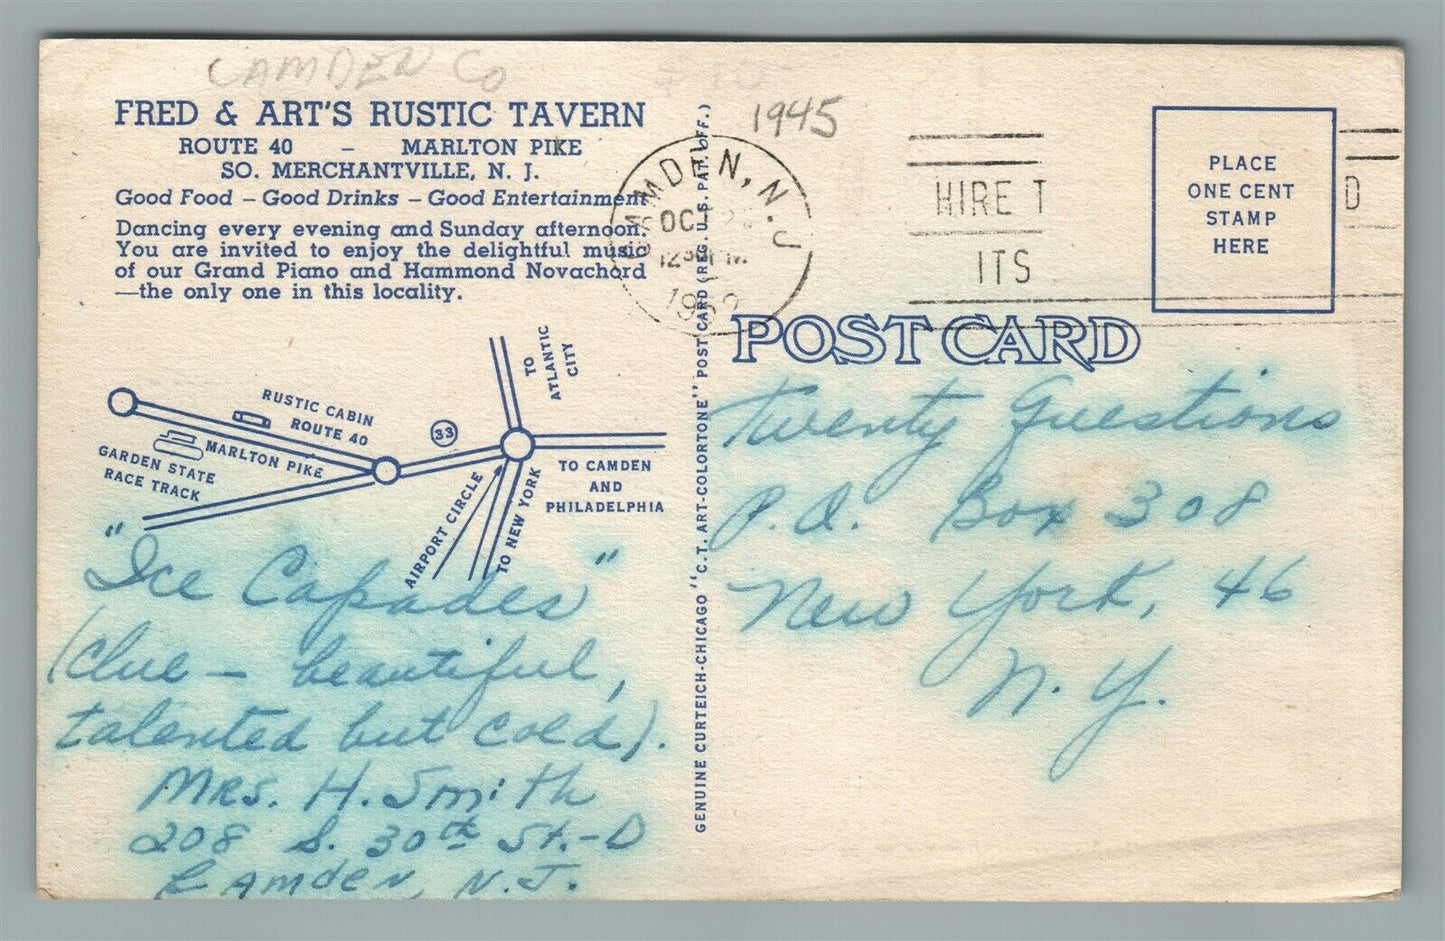 CAMDEN CO
1945
FRED & ART'S RUSTIC TAVERN
ROUTE 40 – MARLTON PIKE
SO. MERCHANTVILLE, N. J.
Good Food – Good Drinks – Good Entertainment
Dancing every evening and Sunday afternoon.
You are invited to enjoy the delightful music
of our Grand Piano and Hammond Novachord
—the only one in this locality.
CAMDEN, N. J.
OCT
12 30 PM
HIRE T
ITS
D
PLACE
ONE CENT
STAMP
HERE
POST CARD
GENUINE CURTEICH-CHICAGO "C.T. ART-COLORTONE" POST CARD (REG. U.S. PAT. OFF.)
TO
ATLANTIC
CITY
RUSTIC CABIN
ROUTE 40
33
MARLTON PIKE
GARDEN STATE
RACE TRACK
AIRPORT CIRCLE
TO NEW YORK
TO CAMDEN
AND
PHILADELPHIA
"Ice Capades"
(clue – beautiful,
talented but cold).
Mrs. H. Smith
208 S. 30th St.-D
Camden, N.J.
Twenty Questions
P.O. Box 308
New York, 46
N. Y.